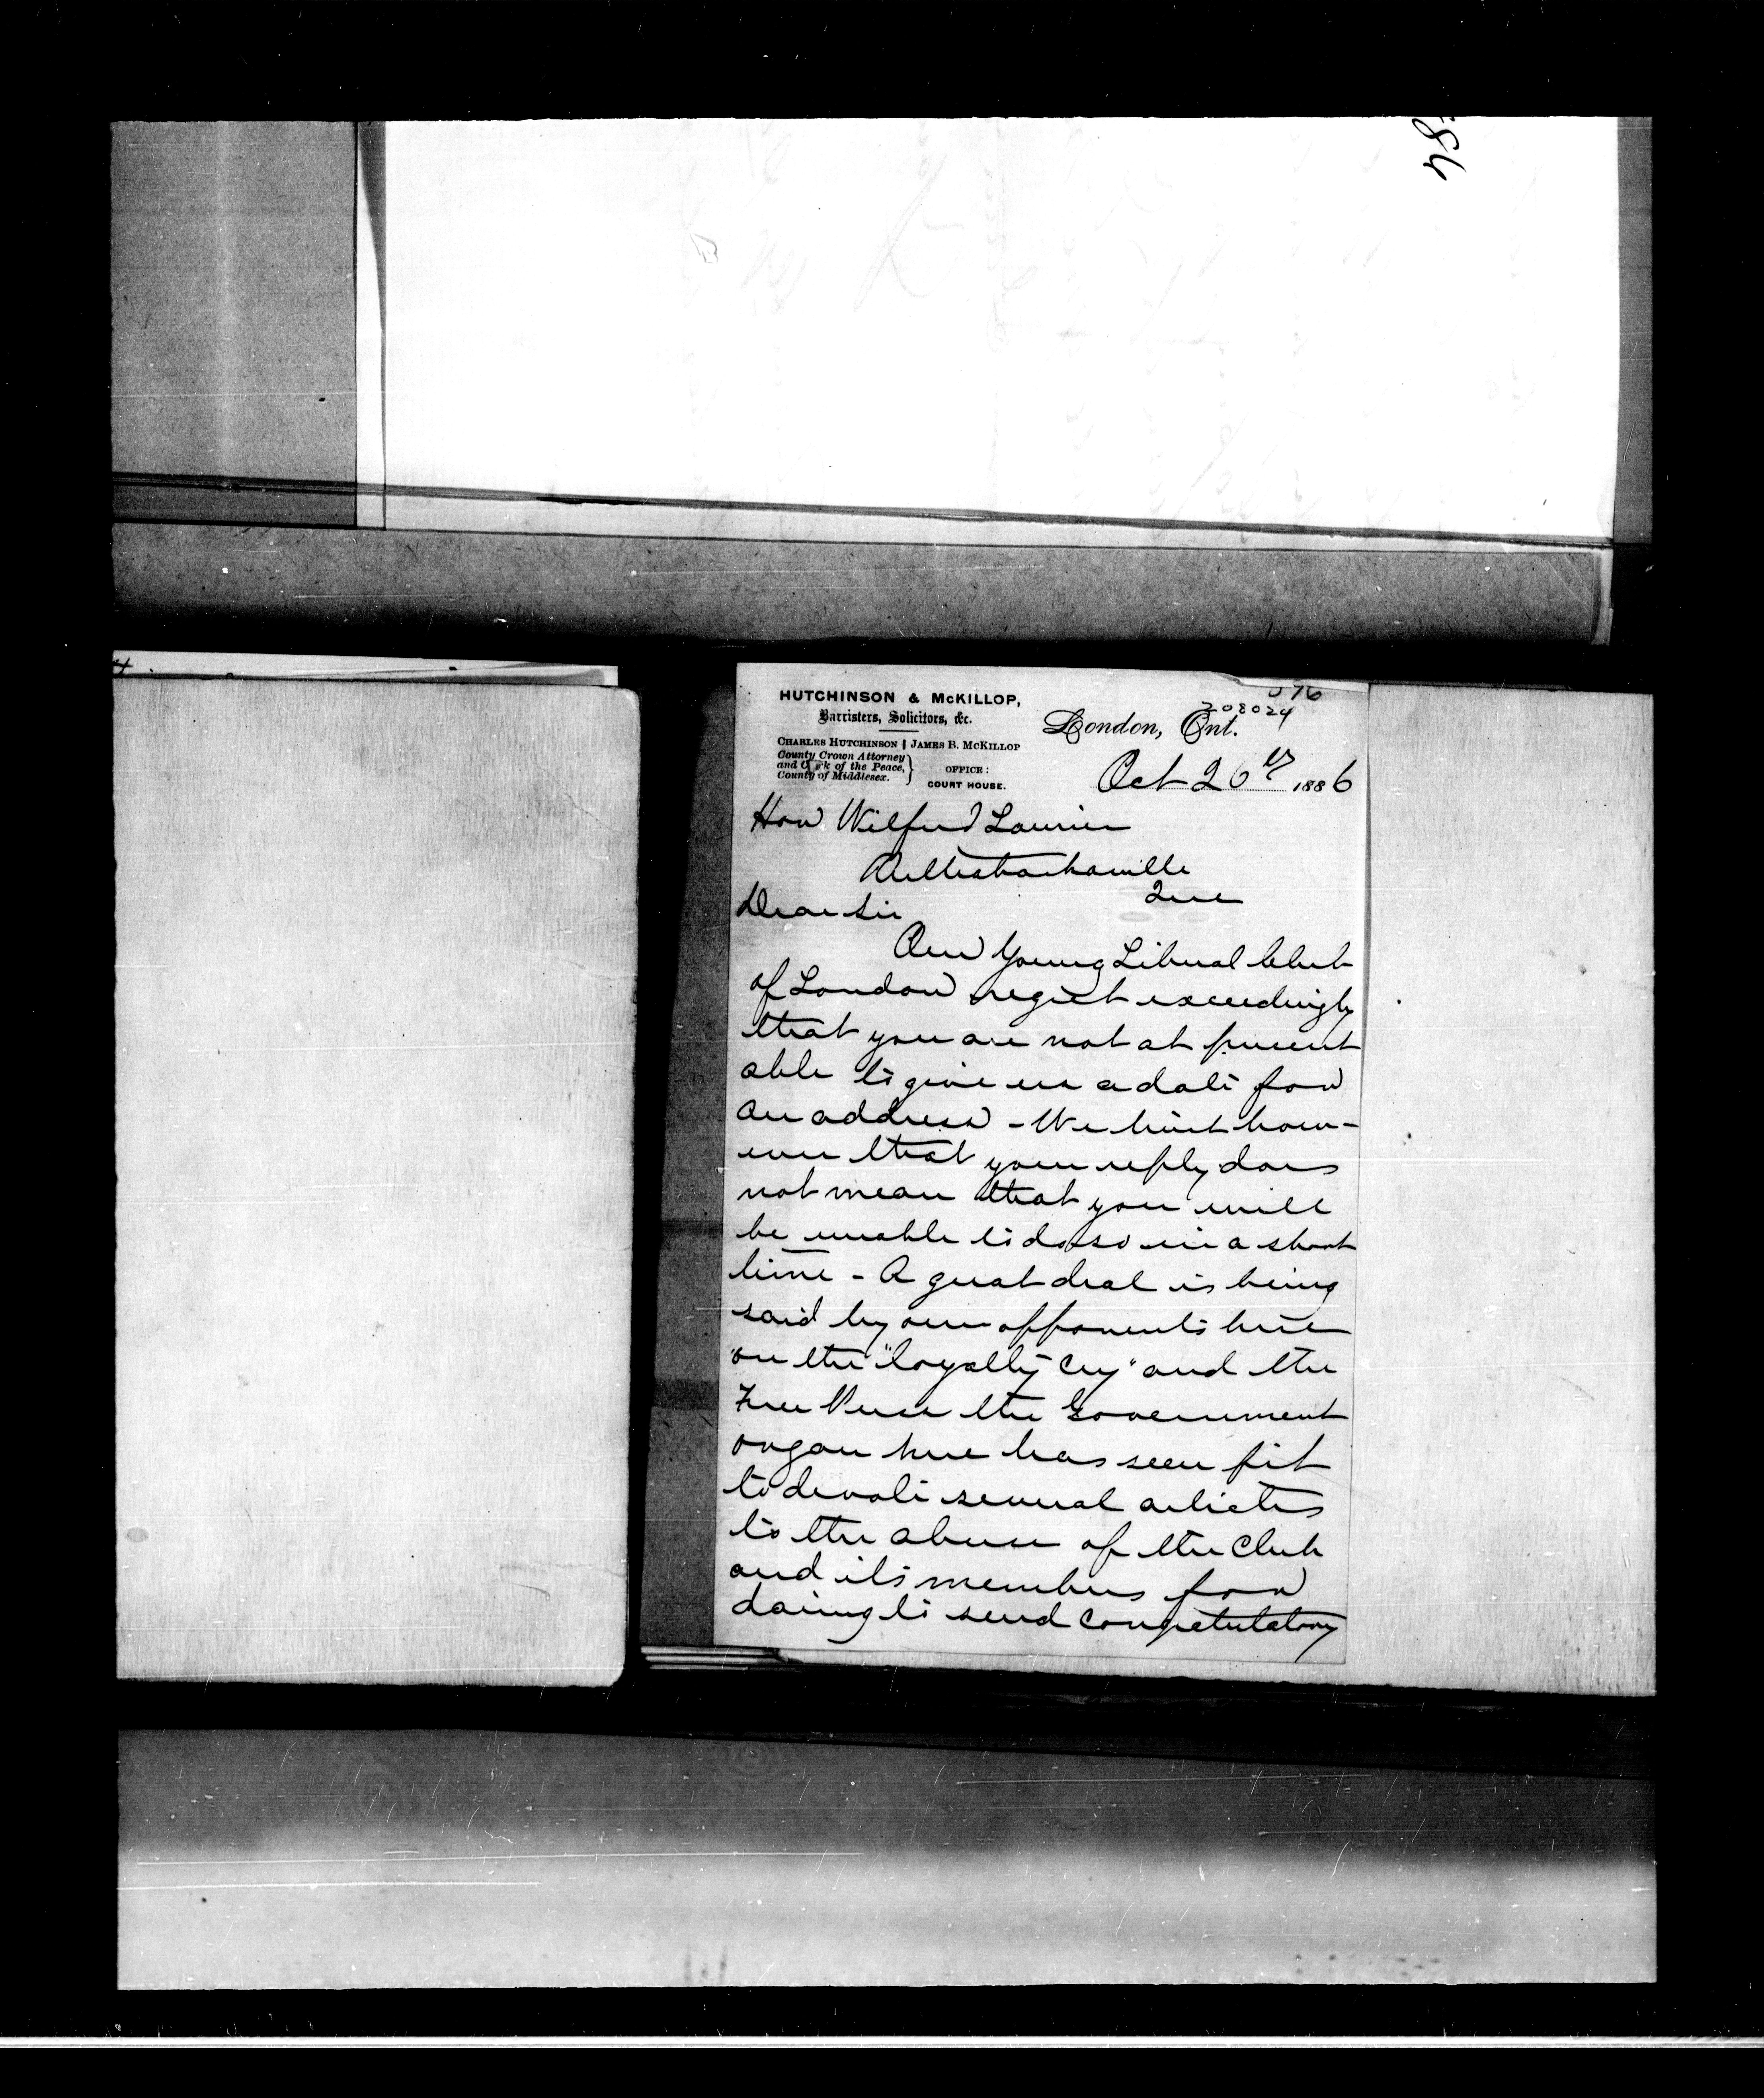 HUTCHINSON & McKILLOP,
Barristers, Solicitors, &c.
CHARLES HUTCHINSON | JAMES B. McKILLOP
County Crown Attorney
and Clerk of the Peace,
County of Middlesex.
OFFICE:
COURT HOUSE.
576
208024
London, Ont.
Oct 26th 1886
Hon Wilfred Laurier
Arthabaskaville
Que
Dear Sir
Our Young Liberal Club
of London regret exceedingly
that you are not at present
able to give us a date for
an address - We trust how-
ever that your reply does
not mean that you will
be unable to do so in a short
time - A great deal is being
said by our opponents here
on the "loyalty cry" and the
Free Press the Government
organ here has seen fit
to devote several articles
to the abuse of the Club
and its members for
daring to send congratulatory